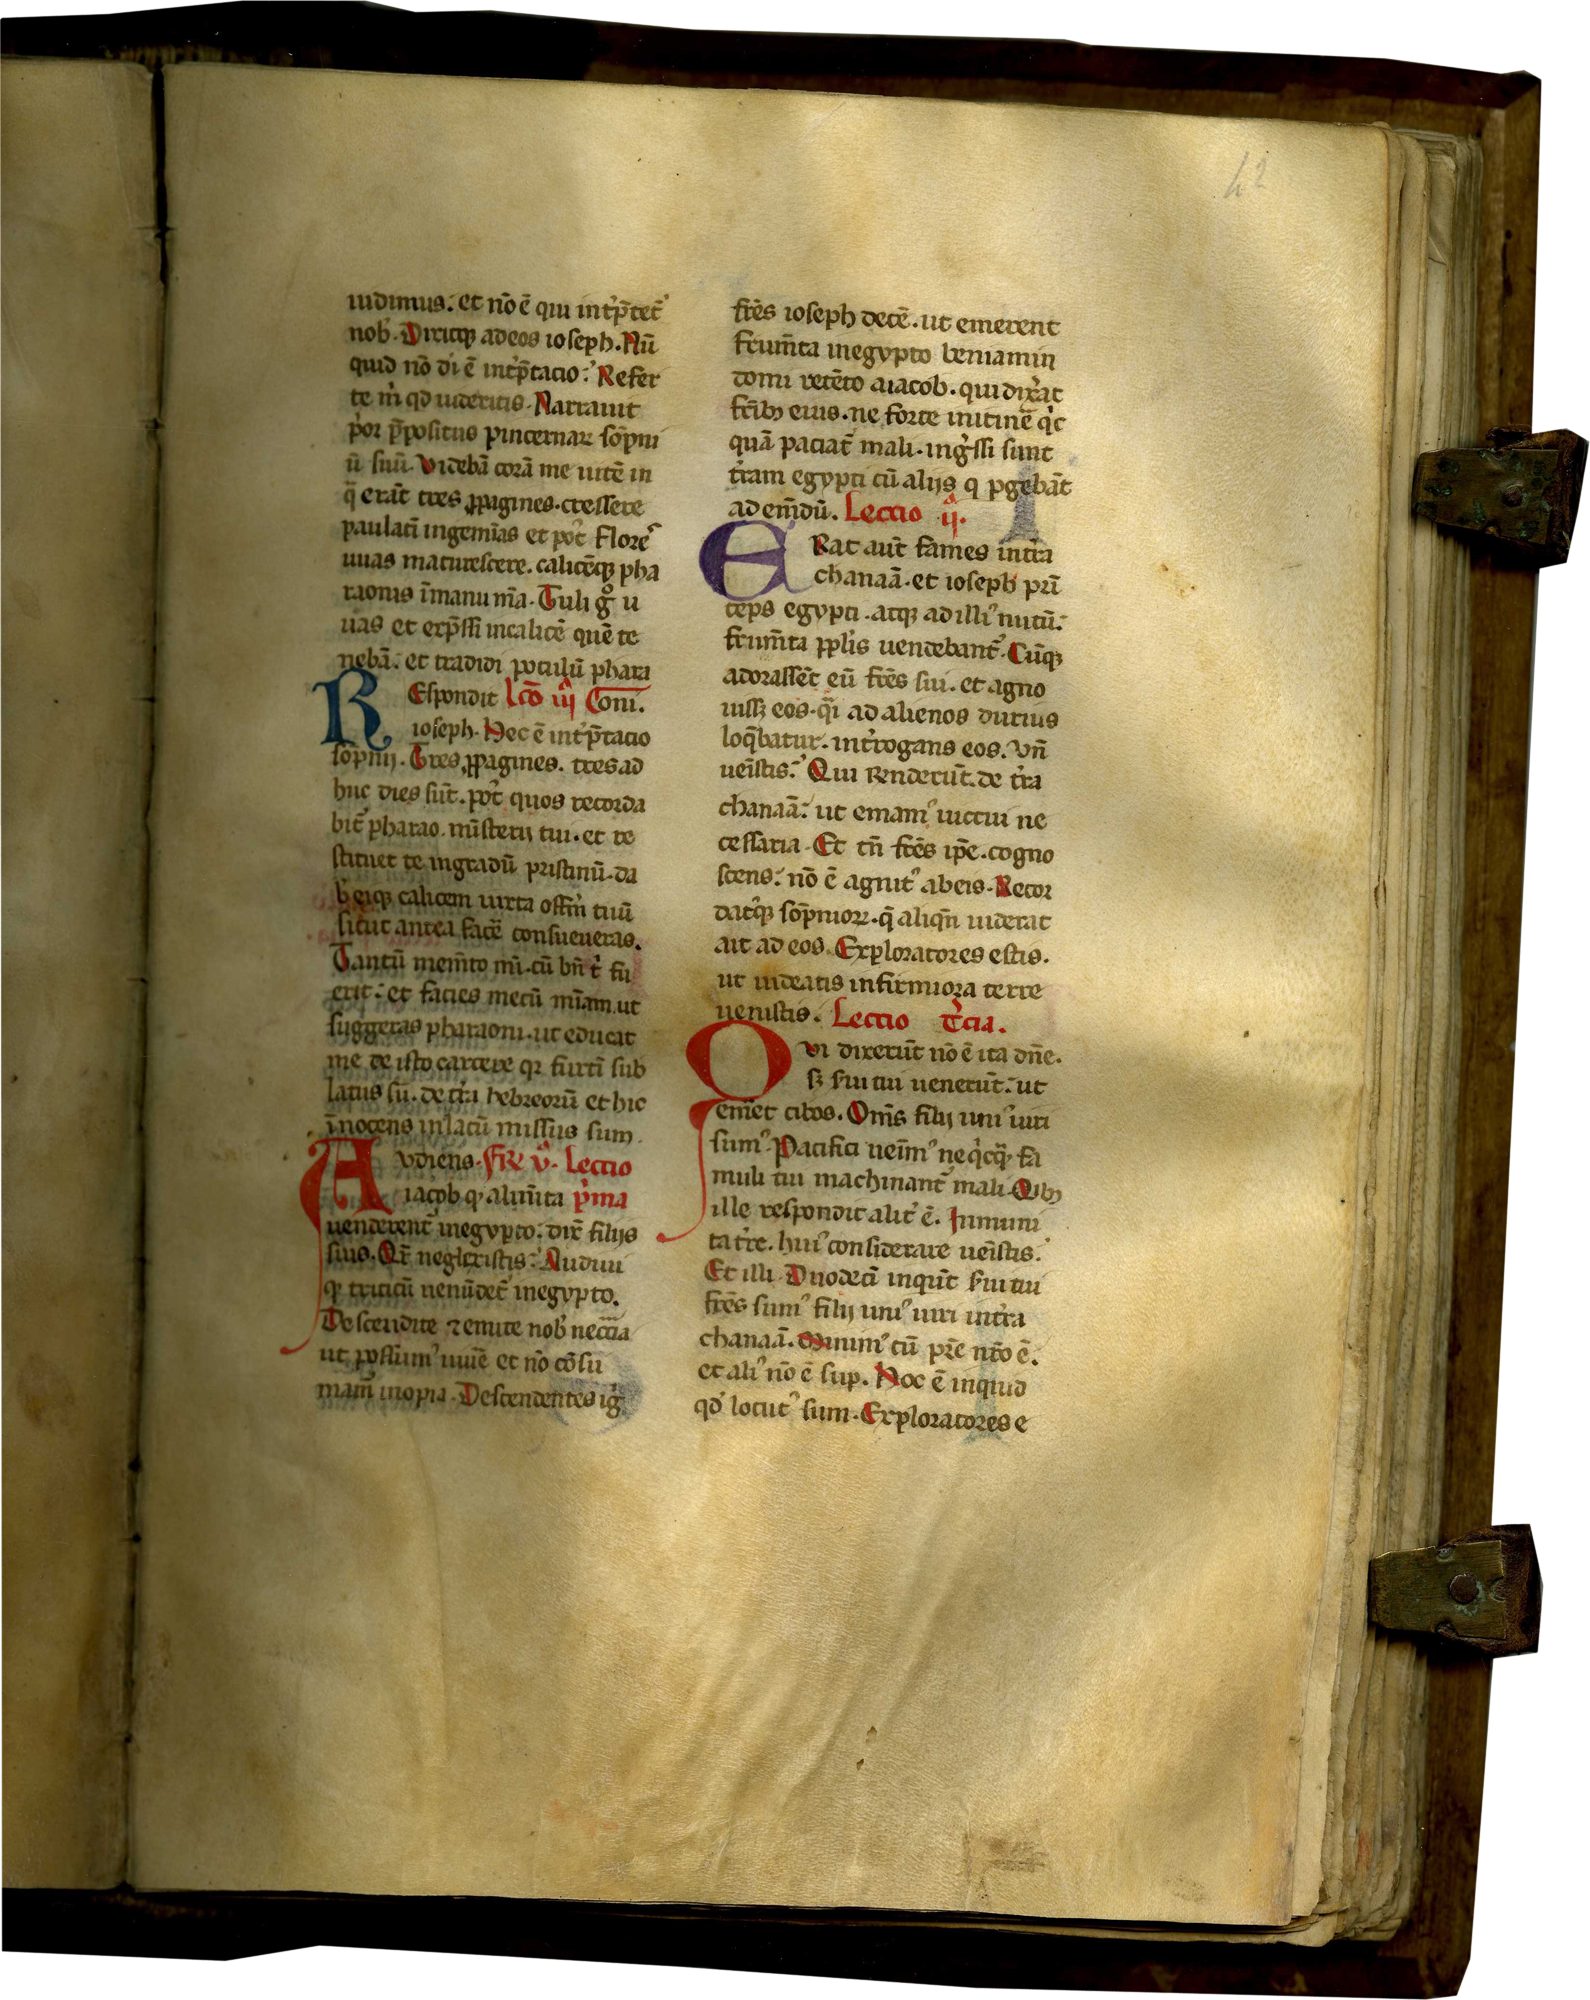 42
uidimus. et nō ē qui int̉p̄tet̉
nob̉. Dixitqꝫ ad eos ioseph. Nū
quid nō di ē int̉p̄tacio. Refer
te m̉ qd uideritis. Narrauit
p̉or p̄positus pincernaꝝ sōpni
ū suū. Videbā corā me uitē in
q̄ erāt tres ꝓpagines. cressere
paulati ingem̄as et pꝰt florē
uuas maturescere. calicēqꝫ pha
raonis ī manu m̄a. Tuli g̊ u
uas et exp̄ssi in calicē quē te
nebā. et tradidi poculū phara
REspondit Lc̄o iij Coni.
ioseph. Hec ē int̉p̄tacio
sōpnij. Tres ꝓpagines. tres ad
huc dies sūt. pꝰt quos recorda
bit̉ pharao. mīsterij tui. et re
stituet te in gradū pristinū. da
b̉ eiqꝫ calicem iuxta offm̉ tuū
sicut antea facē consueueras.
Tantū mem̄to m̉i. cū bn̄ t̉ fu
erit. et facies mecū mīam. ut
suggeras pharaoni. ut educat
me de isto carcere qꝛ furtī sub
latus sū. de t̉ra hebreorū et hic
īnocens in lacū missus sum.
AVdiens. FR v̉. Lectio
iacob ꝙ alim̄ta p̉ma
uenderent̉ in egypto. dix̄ filijs
suis. Qr̄ neglexistis. Audiui
ꝙ triticū uenūdet̉ in egypto.
Descendite ⁊ emite nob̉ necc̄ia
ut possimꝰ uiuē et nō cōsu
mam̉ inopia. Descendentes ig̉
fr̄es ioseph decē. ut emerent
frum̄ta in egypto beniamin
domi retēto a iacob. qui dix̉at
fr̄ibꝫ eius. ne forte in itinē q̉c
quā paciat̉ mali. ing̉ssi sunt
t̉ram egypti cū alijs q pgebāt
ad em̄dū. Lectio ij.
ERat aut̄ fames in t̉ra
chanaā. et ioseph prī
ceps egypti. atqꝫ ad illiꝰ nutū.
frum̄ta ppl̉is uendebant̉. Cūqꝫ
adorassēt eū fr̄es sui. et agno
uissꝫ eos. q̉i ad alienos durius
loq̄batur. int̉rogans eos. Vn̄
ueīstis. Qui Renderūt. de t̉ra
chanaā. ut emamꝰ uictui ne
cessaria. Et tn̄ fr̄es ip̄e. cogno
scens. nō ē agnitꝰ ab eis. Recor
datꝰqꝫ sōpnioꝝ. q̄ aliqn̄ uiderat
ait ad eos. Exploratores estis.
ut uideatis infirmiora terre
uenistis. Lectio t̉cia.
QVi dixerūt nō ē ita dn̄e.
sꝫ s̉ui tui uenerūt. ut
em̉et cibos. Om̄s filij uniꝰ uiri
sumꝰ. Pacifici ueīmꝰ ne q̉cqꝫ fa
muli tui machinant̉ mali. Qibꝫ
ille respondit alit̉ ē. Inmuni
ta t̉re. huiꝰ considerare ueīstis.
Et illi. Duodeci inqūt s̉ui tui
fr̄es sumꝰ filij uniꝰ uiri in t̉ra
chanaā. Minimꝰ cū pr̄e nr̄o ē.
et aliꝰ nō ē sup. Hoc ē inquid
qd̉ locutꝰ sum. Exploratores e